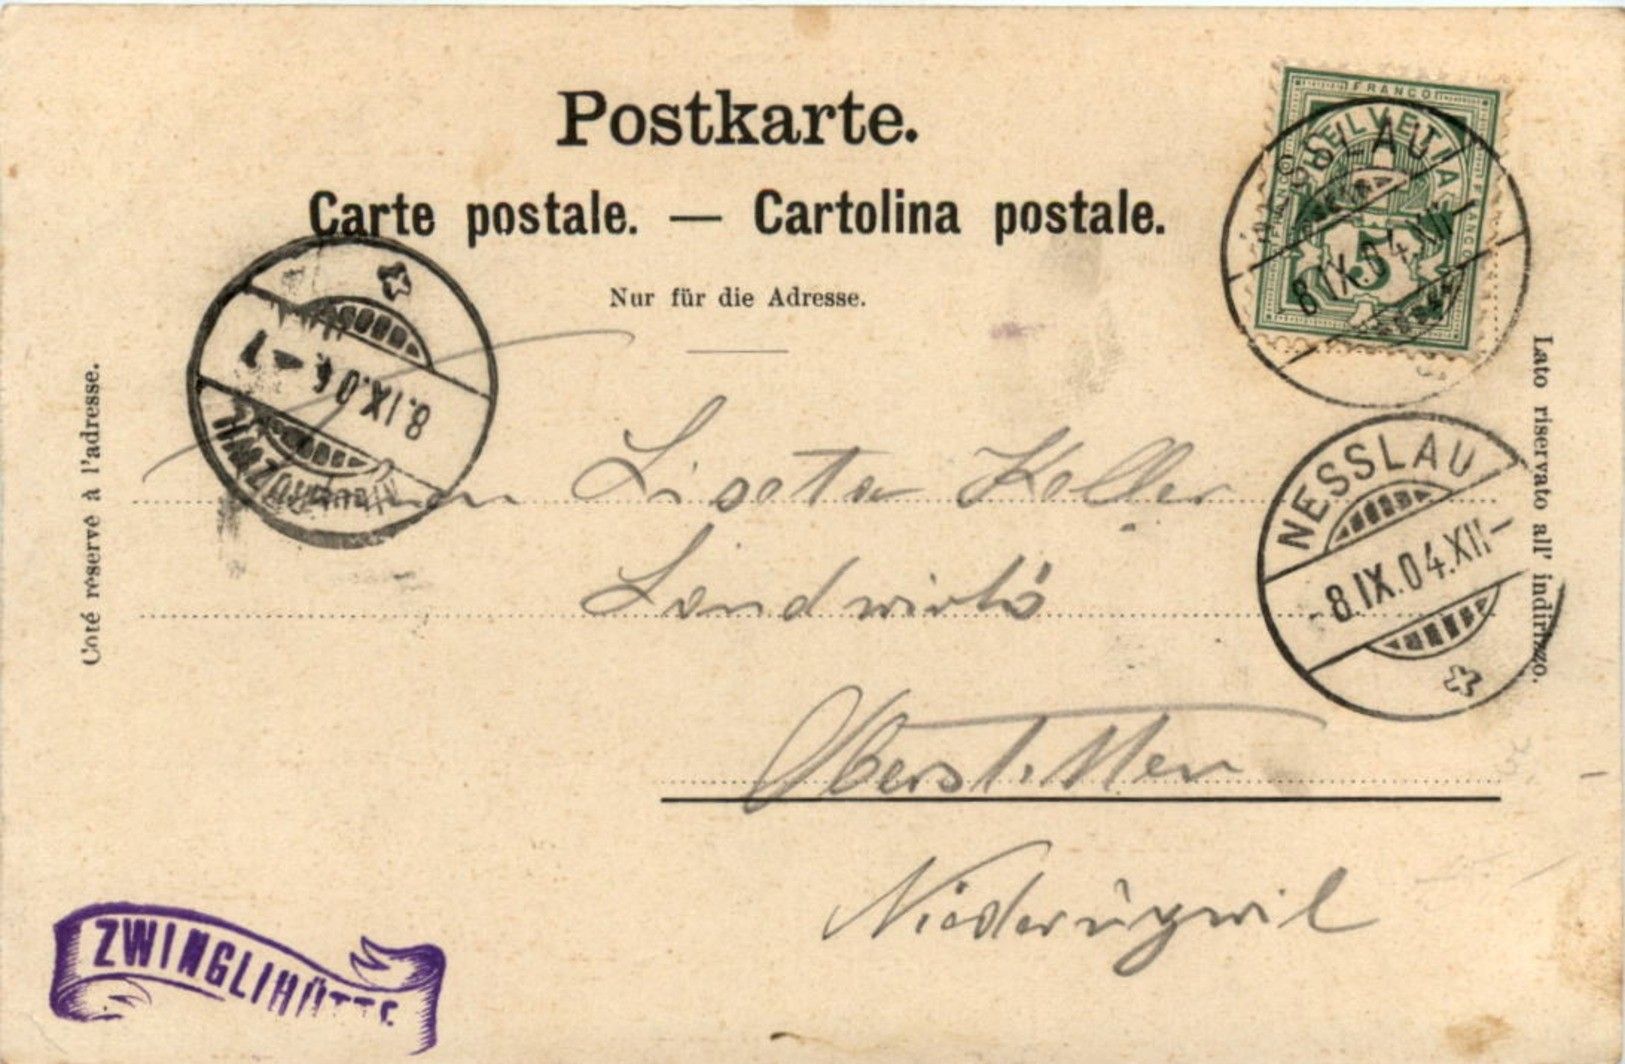 Postkarte.
Carte postale. — Cartolina postale.
Nur für die Adresse.
FRANCO
HELVETIA
5
8.IX.04.XII—
8.IX.04 — 7
NESSLAU
8.IX.04.XII—
Côté réservé à l'adresse.
Lato riservato all' indirizzo.
Lisette Keller
Landwirts
Oberstetten
Niederuzwil
ZWINGLIHÜTTE